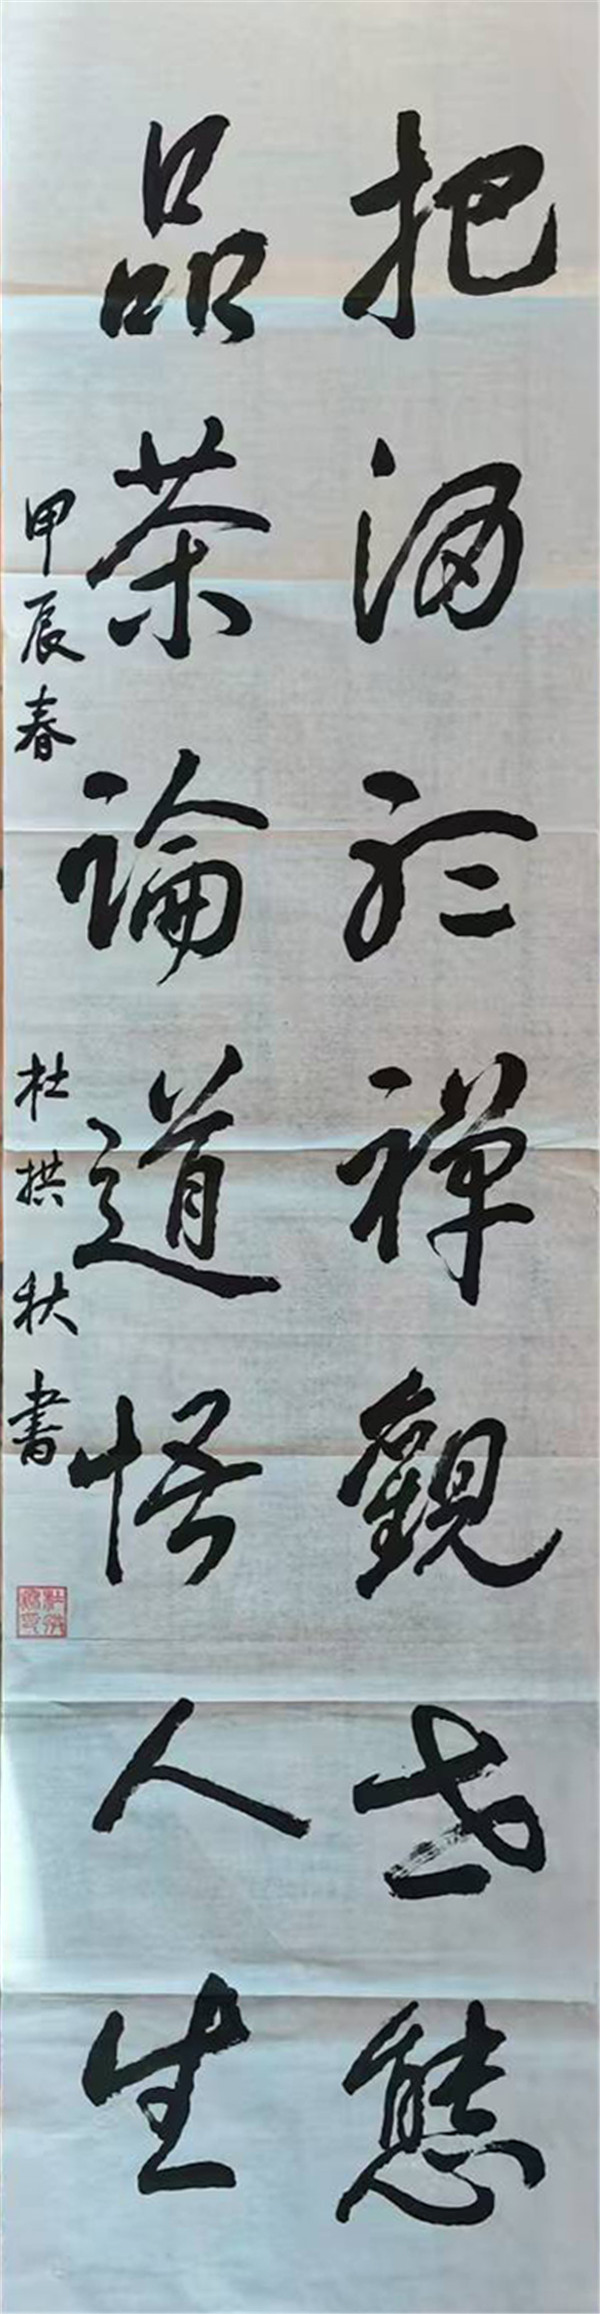 把酒於禪觀世態
品茶論道悟人生
甲辰春 杜拱秋書